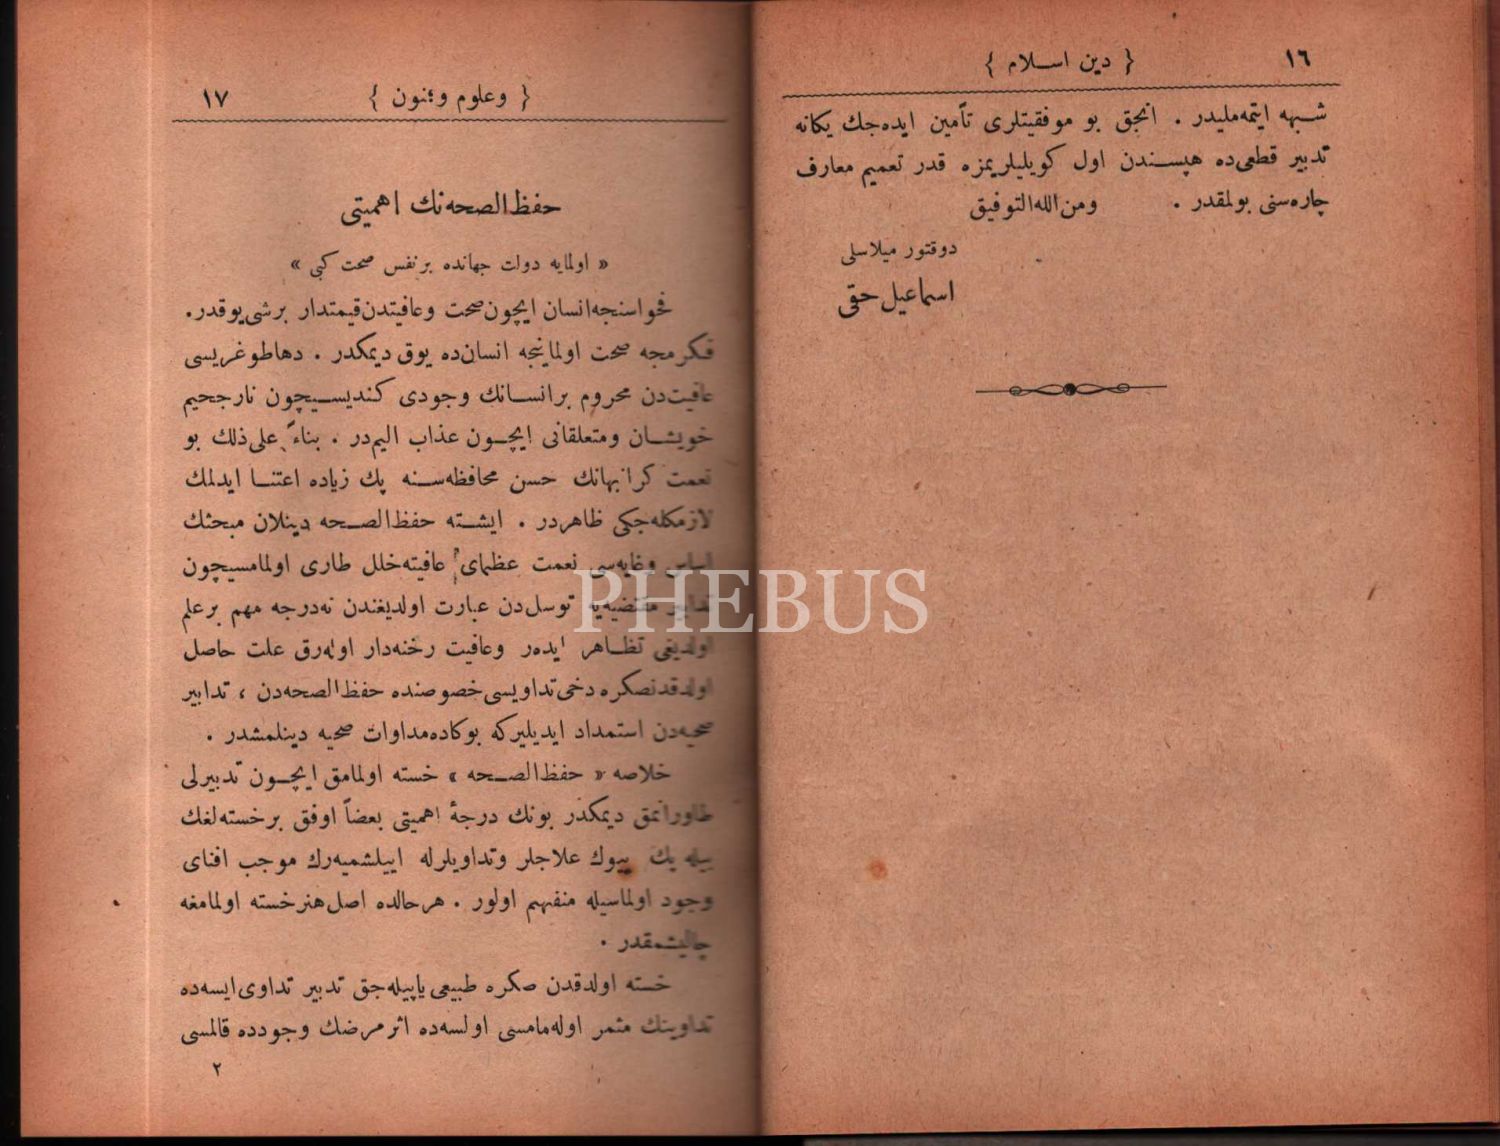 ١٦
{ دين اسـلام }
شـبهه ايتمه‌مليدر . انجق بو موفقيتلرى تأمين ايده‌جك يكانه
تدبير قطعى‌ده هپسـندن اول كويليلريمزه قدر تعميم معارف
چاره‌سنى بولمقدر . ومن‌الله‌التوفيق
دوقتور ميلاسلى
اسماعيل‌حقى
{ وعلوم وفنون }
١٧
حفظ‌الصحه‌نك اهميتى
« اولمايه دولت جهانده برنفس صحت كبى »
فحواسنجه‌انسان ايچون‌صحت وعافيتدن‌قيمتدار برشى‌يوقدر.
فكرمجه صحت اولمانيجه انسان‌ده يوق ديمكدر . دهاطوغريسى
عافيت‌دن محروم برانسـانك وجودى كنديسـيچون نارجحيم
خويشـان ومتعلقانى ايچـون عذاب اليم‌در . بناءً على‌ذلك بو
نعمت كرانبهانك حسن محافظه‌سـنه پك زياده اعتنـا ايدلمك
لازمكله‌جكى ظاهردر . ايشـته حفظ‌الصـحه دينلان مبحثك
اساس وغايه‌سى نعمت عظماى عافيته‌خلل طارى اولمامسيچون
تدابير مقتضيه‌يه توسل‌دن عبارت اولديغندن نه‌درجه مهم برعلم
اولديغى تظـاهر ايده‌ر وعافيت رخنه‌دار اوله‌رق علت حاصل
اولدقدنصكره دخى‌تداويسى‌خصوصنده حفظ‌الصحه‌دن ، تدابير
صحيه‌دن استمداد ايديليركه بوكاده‌مداوات صحيه دينلمشدر .
خلاصه « حفظ‌الصـحه » خسته اولمامق ايچـون تدبيرلى
طاورانمق ديمكدر بونك درجهٔ اهميتى بعضاً اوفق برخسته‌لغك
بيله پك بيوك علاجلر وتداويلرله اييلشميه‌رك موجب افناى
وجود اولماسيله منفهم اولور . هرحالده اصل‌هنرخسته اولمامغه
چاليشمقدر .
خسته اولدقدن صكره طبيعى ياپيله‌جق تدبير تداوى‌ايسه‌ده
تداوينك مثمر اوله‌مامسى اولسه‌ده اثرمرضك وجودده قالمسى
٢
PHEBUS